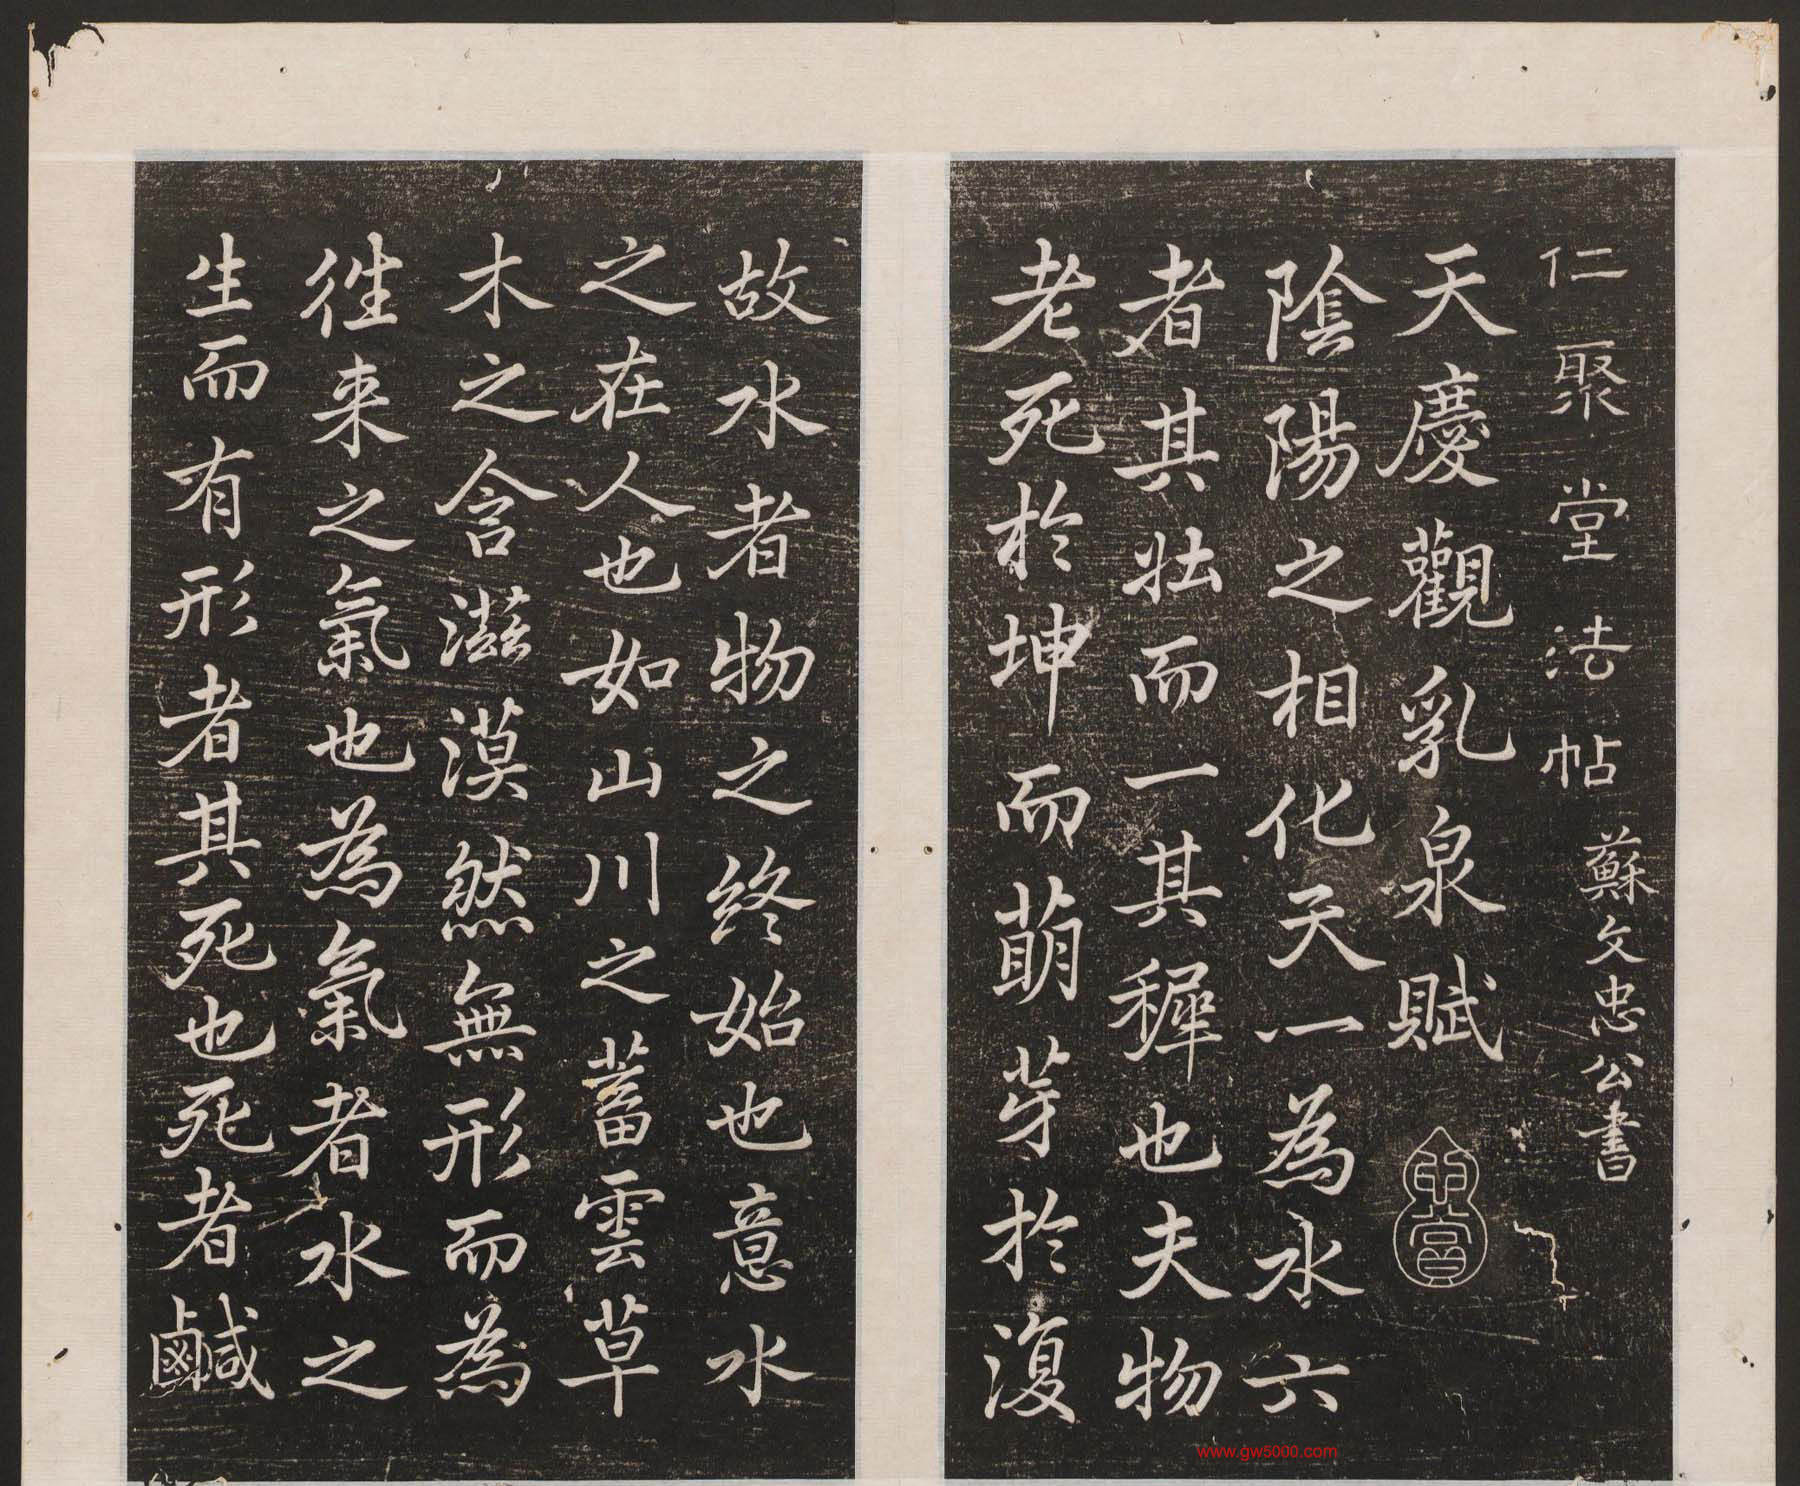 仁聚堂法帖 蘇文忠公書
天慶觀乳泉賦
陰陽之相化天一為水六
者其壯而一其穉也夫物
老死於坤而萌芽於復
故水者物之終始也意水
之在人也如山川之蓄雲草
木之含滋漠然無形而為
徃来之氣也為氣者水之
生而有形者其死也死者鹹
www.gw5000.com